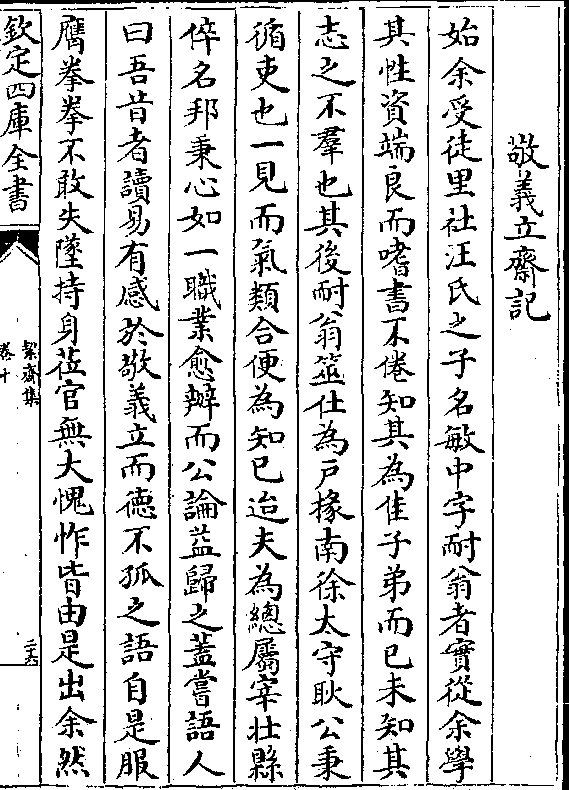 敬義立齋記
始余受徒里社汪氏之子名敏中字耐翁者實從余學
其性資端良而嗜書不倦知其為佳子弟而已未知其
志之不羣也其後耐翁筮仕為戶掾南徐太守耿公秉
循吏也一見而氣類合便為知已迨夫為總屬宰壯縣
倅名邦秉心如一職業愈辦而公論益歸之蓋嘗語人
曰吾昔者讀易有感於敬義立而德不孤之語自是服
膺拳拳不敢失墜持身莅官無大愧怍皆由是出余然
欽定四庫全書
絜齋集
卷十
二十六